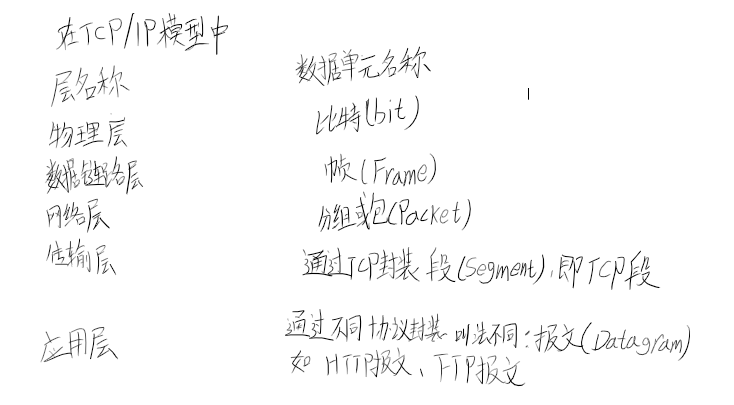 在TCP/IP模型中
层名称 数据单元名称
物理层 比特(bit)
数据链路层 帧(Frame)
网络层 分组或包(Packet)
传输层 通过TCP封装 段(Segment),即TCP段
应用层 通过不同协议封装 叫法不同:报文(Datagram)
如 HTTP报文、FTP报文